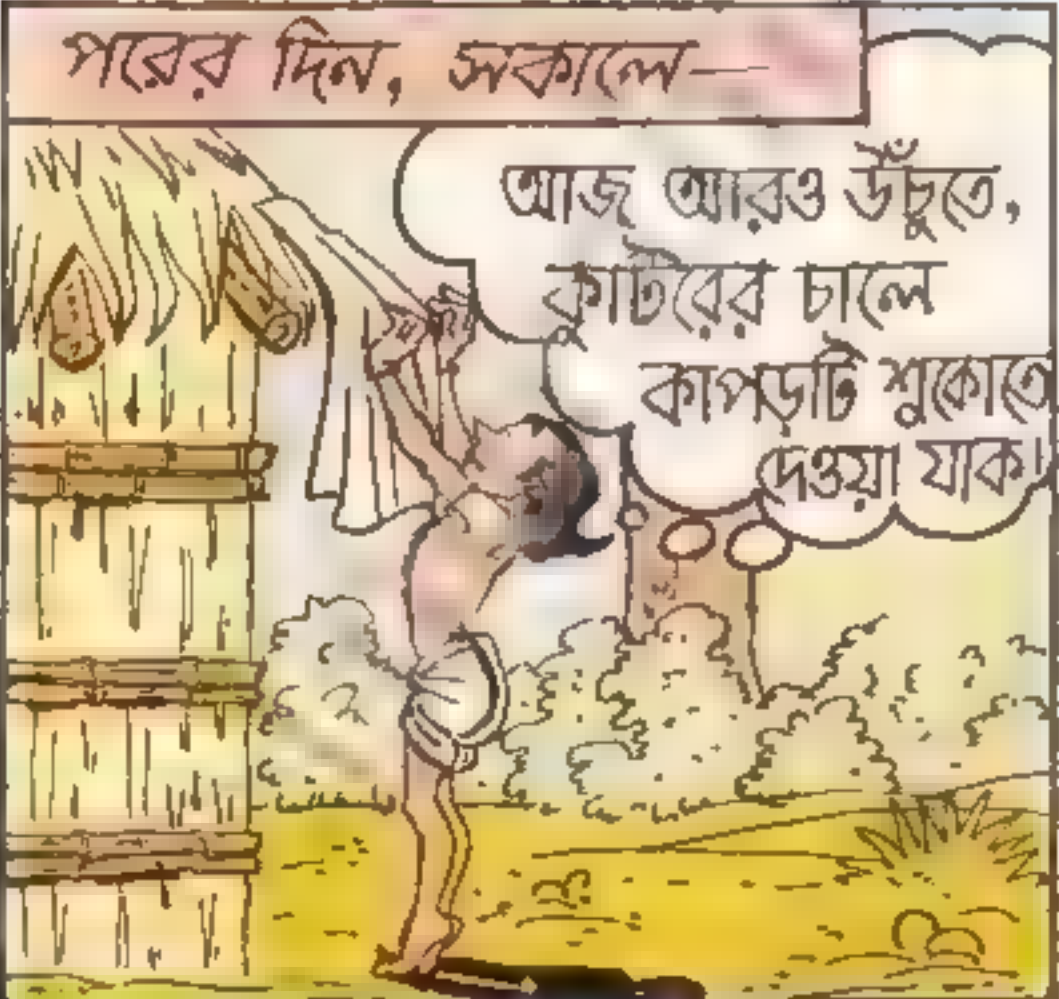 পরের দিন, সকালে—
আজ আরও উঁচুতে,
কুটিরের চালে
কাপড়টি শুকোতে
দেওয়া যাক।